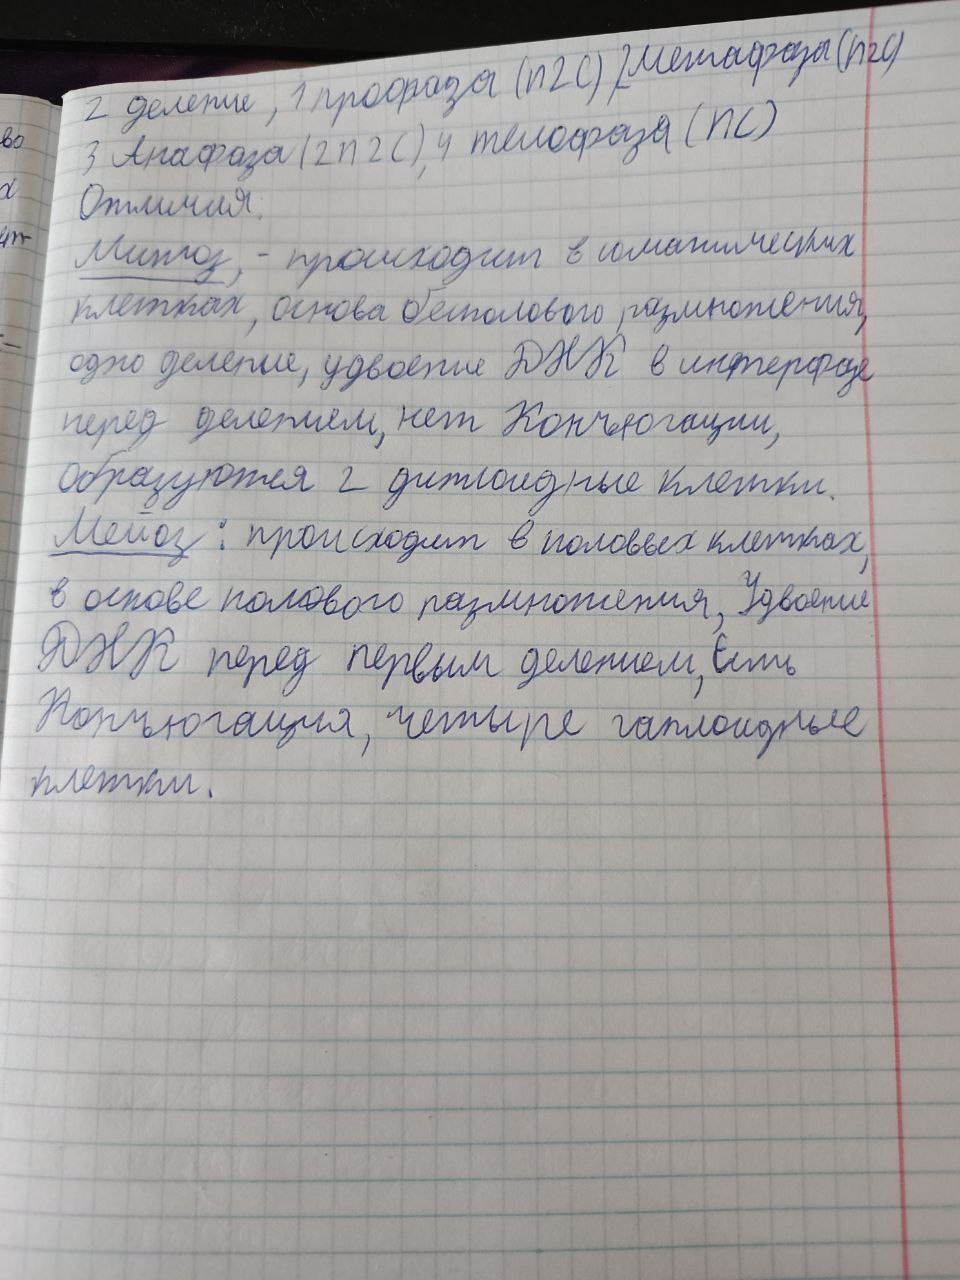 2 деление, 1 профаза (n2C), 2 Метафаза (n2C)
3 Анафаза (2n2C), 4 телофаза (nC)
Отличия:
Митоз, - происходит в соматических
клетках, основа бесполового размножения,
одно деление, удвоение ДНК в интерфазе
перед делением, нет Конъюгации,
образуются 2 диплоидные клетки.
Мейоз: происходит в половых клетках,
в основе полового размножения, Удвоение
ДНК перед первым делением, Есть
Конъюгация, четыре гаплоидные
клетки.
во
х